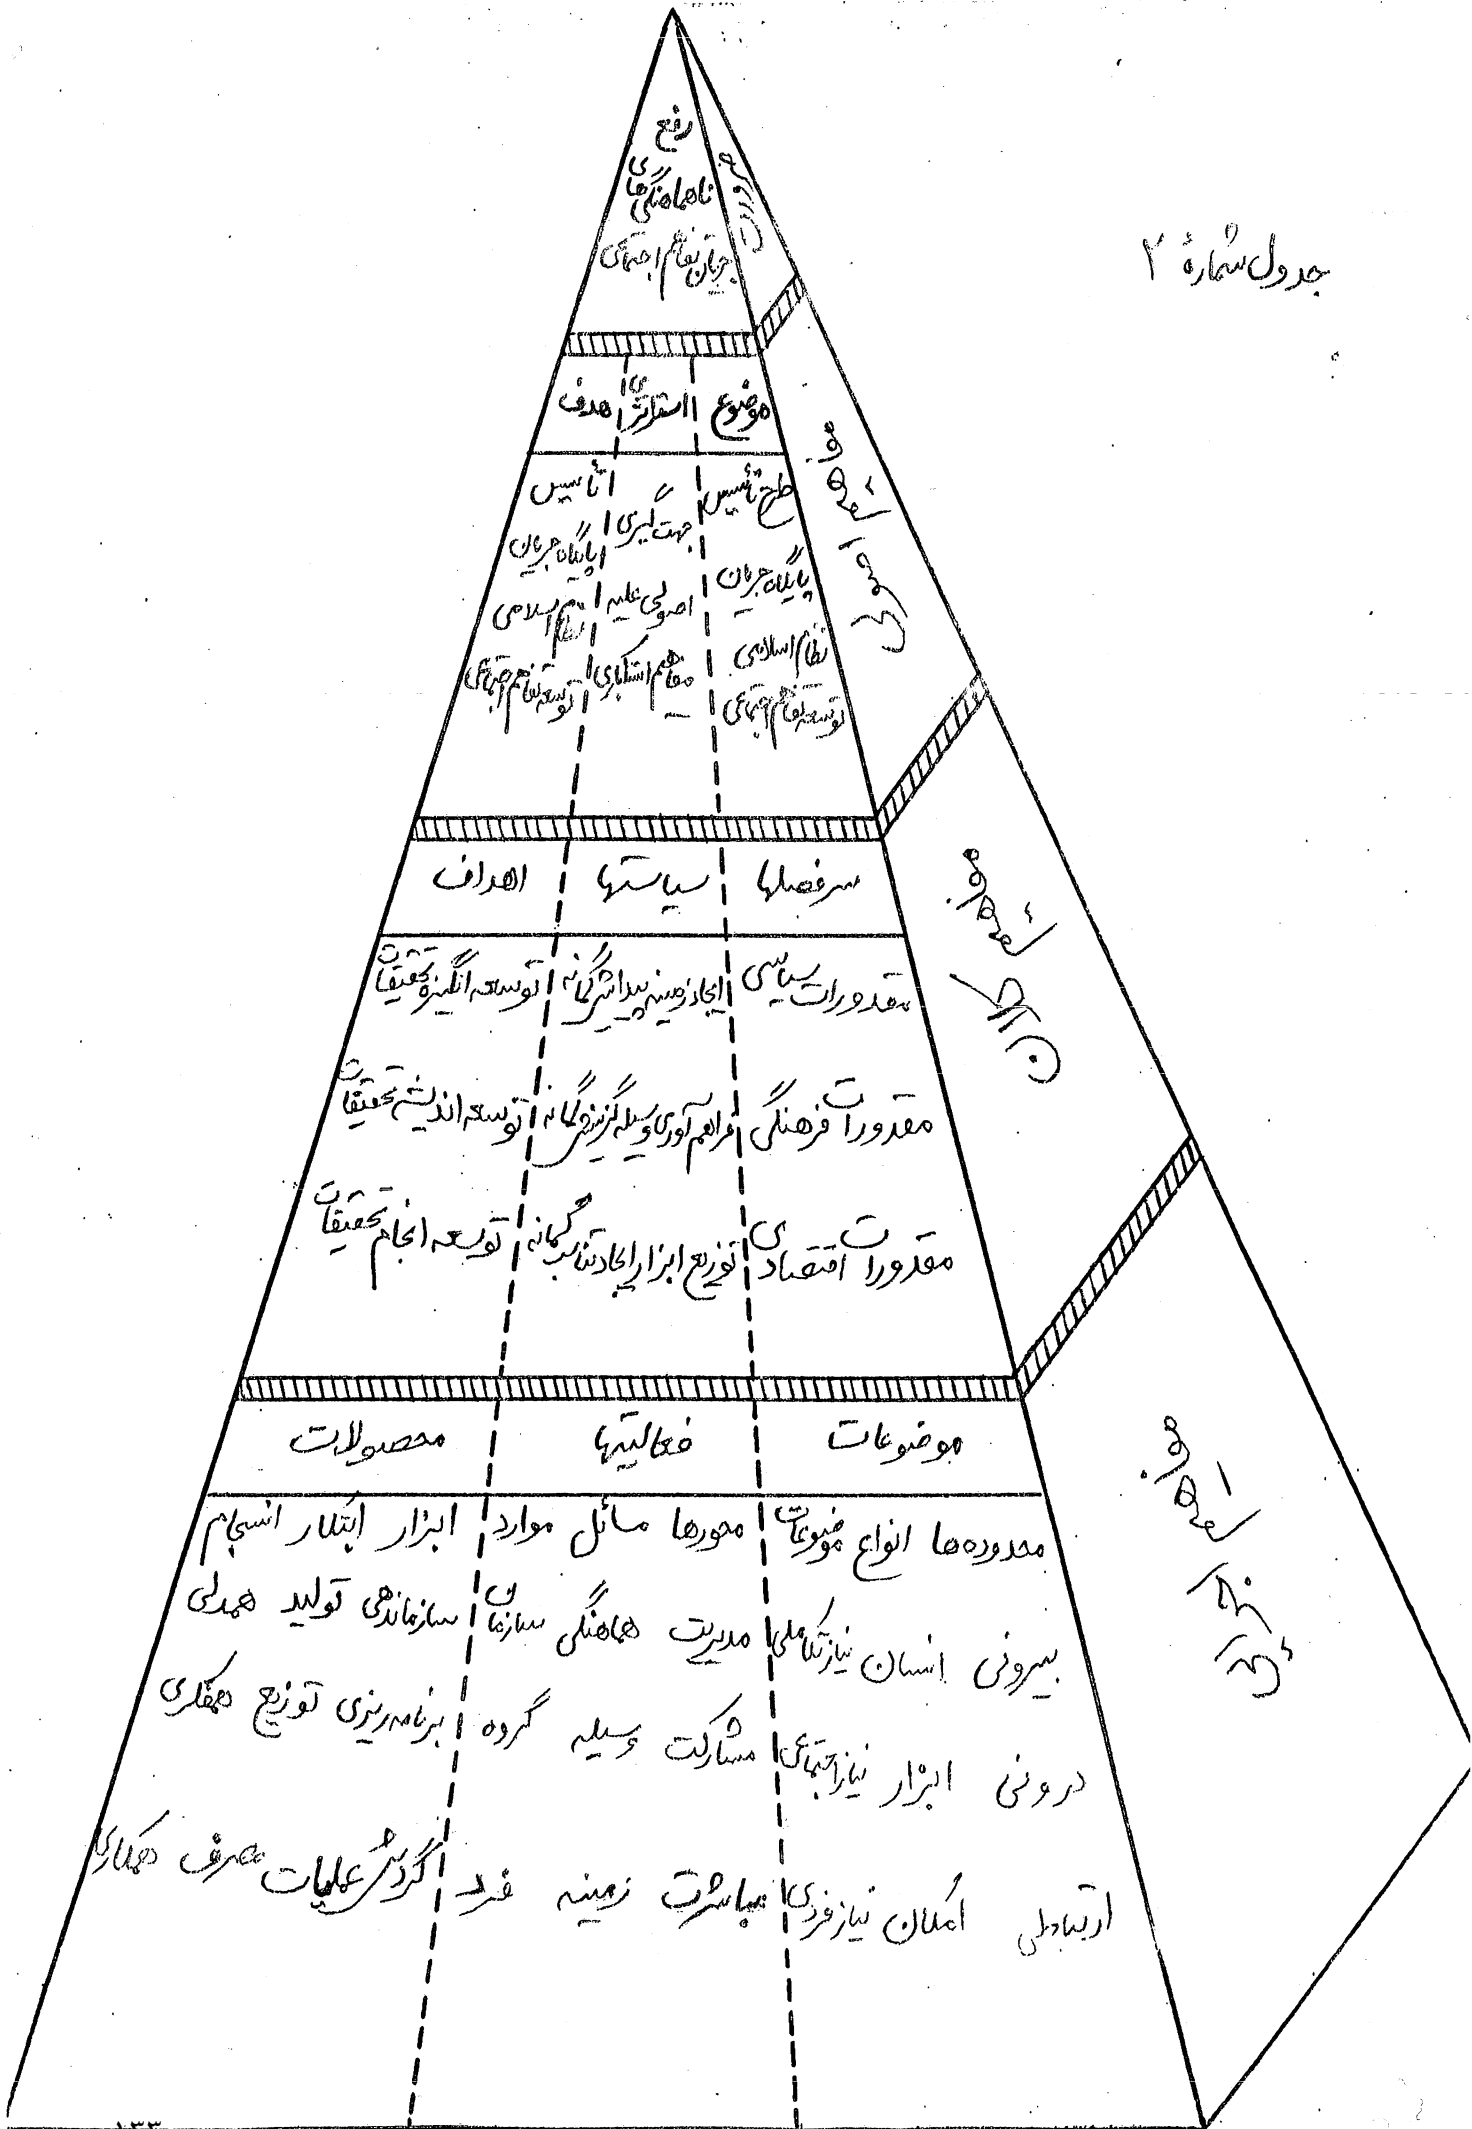 جدول شمارۀ ۲
رفع
ناهماهنگی‌های
جریان تفاهم اجتماعی
ضرورت
موضوع استراتژی هدف
طرح تأسیس جهت‌گیری تأسیس
پایگاه جریان اصولی علیه پایگاه جریان
نظام اسلامی مفاهیم استکباری نظام اسلامی
توسعه تفاهم اجتماعی توسعه تفاهم اجتماعی
مواضع اصولی
سرفصلها سیاستها اهداف
مقدورات سیاسی ایجاد زمینه پیدایش گمانه توسعه انگیزه تحقیقات
مقدورات فرهنگی فراهم آوری وسیله گزینش گمانه توسعه اندیشه تحقیقات
مقدورات اقتصادی توزیع ابزار ایجاد تناسب گمانه توسعه انجام تحقیقات
کلان
موضوعات فعالیتها محصولات
محدوده‌ها انواع موضوعات محورها مسائل موارد ابزار ابتکار انسجام
بیرونی انسان نیاز تکاملی مدیریت هماهنگی سازمان سازماندهی تولید همدلی
درونی ابزار نیاز اجتماعی مشارکت وسیله گروه برنامه‌ریزی توزیع همفکری
ارتباطی امکان نیاز فردی مباشرت زمینه فرد گردش عملیات مصرف همکاری
۱۳۳